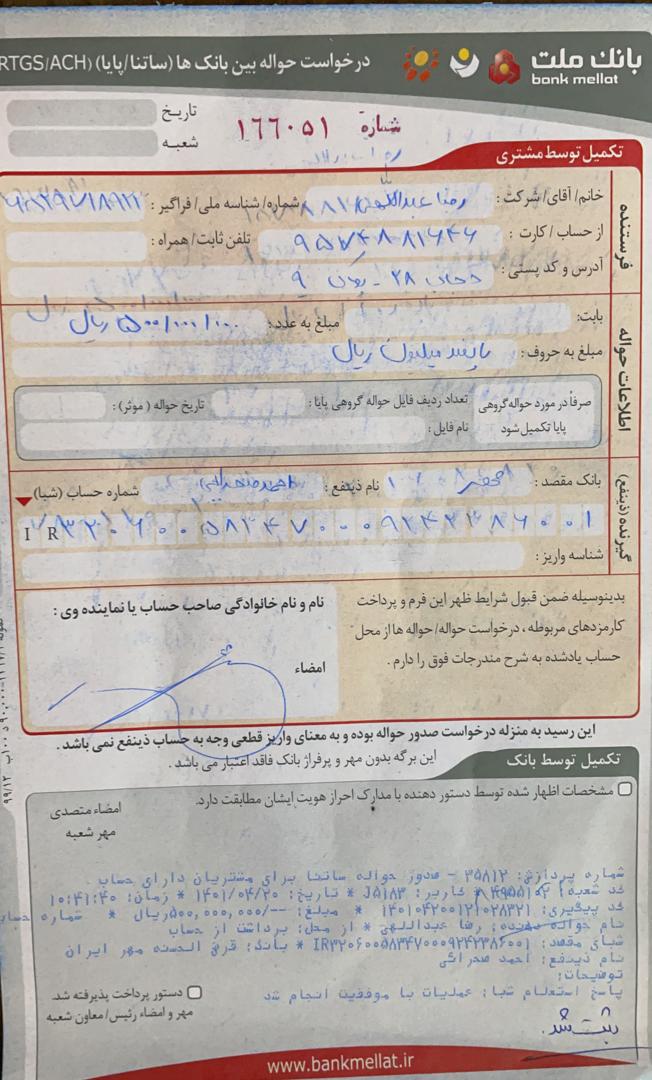 بانک ملت
bank mellat
درخواست حواله بین بانک ها (ساتنا/پایا) (RTGS/ACH
تاریخ
شماره ۱۶۶۰۵۱
شعبه
تکمیل توسط مشتری
فرستنده
خانم/ آقای/ شرکت : رضا عبداللهی شماره/ شناسه ملی/ فراگیر :
از حساب / کارت : تلفن ثابت/ همراه :
آدرس و کد پستی :
اطلاعات حواله
بابت: مبلغ به عدد: ۵۰۰/۰۰۰/۰۰۰ ریال
مبلغ به حروف : پانصد میلیون ریال
صرفاً در مورد حواله گروهی پایا تکمیل شود
تعداد ردیف فایل حواله گروهی پایا : تاریخ حواله ( موثر) :
نام فایل :
گیرنده (ذینفع)
بانک مقصد : نام ذینفع : احمد صحرائی شماره حساب (شبا)
IR ۳۲۰۶۰۰۵۸۳۴۷۰۰۰۹۲۴۲۳۸۶۰۰۱
شناسه واریز :
بدینوسیله ضمن قبول شرایط ظهر این فرم و پرداخت
کارمزدهای مربوطه ، درخواست حواله/ حواله ها از محل
حساب یادشده به شرح مندرجات فوق را دارم .
نام و نام خانوادگی صاحب حساب یا نماینده وی :
امضاء
این رسید به منزله درخواست صدور حواله بوده و به معنای واریز قطعی وجه به حساب ذینفع نمی باشد .
این برگه بدون مهر و پرفراژ بانک فاقد اعتبار می باشد .
تکمیل توسط بانک
مشخصات اظهار شده توسط دستور دهنده با مدارک احراز هویت ایشان مطابقت دارد.
امضاء متصدی
مهر شعبه
شماره پردازش: ۳۵۸۱۲ - صدور حواله ساتنا برای مشتریان دارای حساب
کد شعبه: کاربر: J۵۱۸۳ * تاریخ: ۱۴۰۱/۰۴/۲۰ * زمان: ۱۰:۴۱:۴۰
کد پیگیری: ۱۴۰۱۰۴۲۰۰۱۲۱۰۲۸۳۲۱ * مبلغ: --/۵۰۰,۰۰۰,۰۰۰ریال * شماره حساب
نام حواله دهنده: رضا عبداللهی * از محل: برداشت از حساب
شبای مقصد: IR۳۲۰۶۰۰۵۸۳۴۷۰۰۰۹۲۴۲۳۸۶۰۰۱ * بانک: قرض الحسنه مهر ایران
نام ذینفع: احمد صحرائی
توضیحات:
پاسخ استعلام شبا: عملیات با موفقیت انجام شد
دستور پرداخت پذیرفته شد.
مهر و امضاء رئیس/ معاون شعبه
ثبت شد.
www.bankmellat.ir